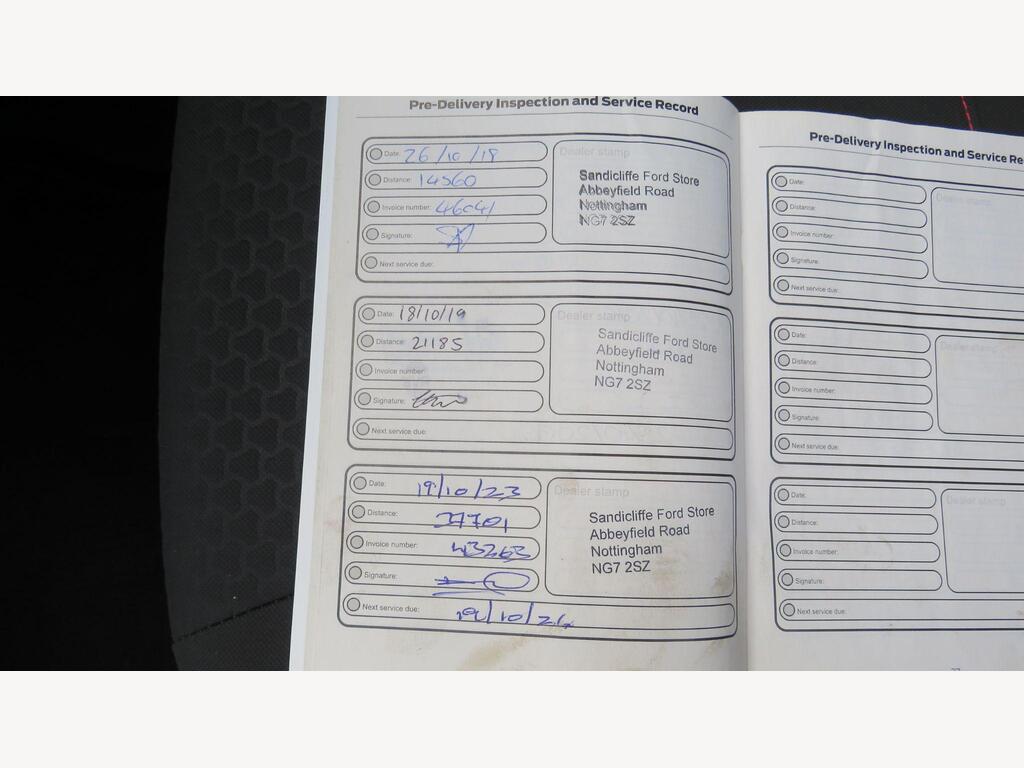 Pre-Delivery Inspection and Service Record
Date: 26/10/18
Distance: 14560
Invoice number: 46041
Signature:
Next service due:
Dealer stamp
Sandicliffe Ford Store
Abbeyfield Road
Nottingham
NG7 2SZ
Date: 18/10/19
Distance: 21185
Invoice number:
Signature:
Next service due:
Dealer stamp
Sandicliffe Ford Store
Abbeyfield Road
Nottingham
NG7 2SZ
Date: 19/10/23
Distance: 37701
Invoice number: 43263
Signature:
Next service due: 19/10/24
Dealer stamp
Sandicliffe Ford Store
Abbeyfield Road
Nottingham
NG7 2SZ
Pre-Delivery Inspection and Service Re
Date:
Distance:
Invoice number:
Signature:
Next service due:
Dealer stamp
Date:
Distance:
Invoice number:
Signature:
Next service due:
Dealer stamp
Date:
Distance:
Invoice number:
Signature:
Next service due:
Dealer stamp